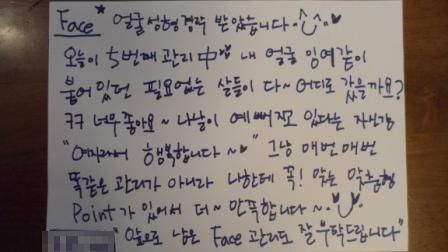 Face 얼굴성형경락 받았습니다. ^^ ♥
오늘이 5번째 관리中인데 내 얼굴 잉여같이
붙어 있던 필요없는 살들이 다~ 어디로 갔을까요?
ㅋㅋ 너무 좋아요~ 나날이 예뻐지고 있다는 자신감
"여자라서 행복합니다~♥" 그냥 매번매번
똑같은 관리가 아니라 나한테 꼭! 맞는 맞춤형
Point가 있어서 더~ 만족합니다~
"앞으로 남은 Face 관리도 잘 부탁드립니다"